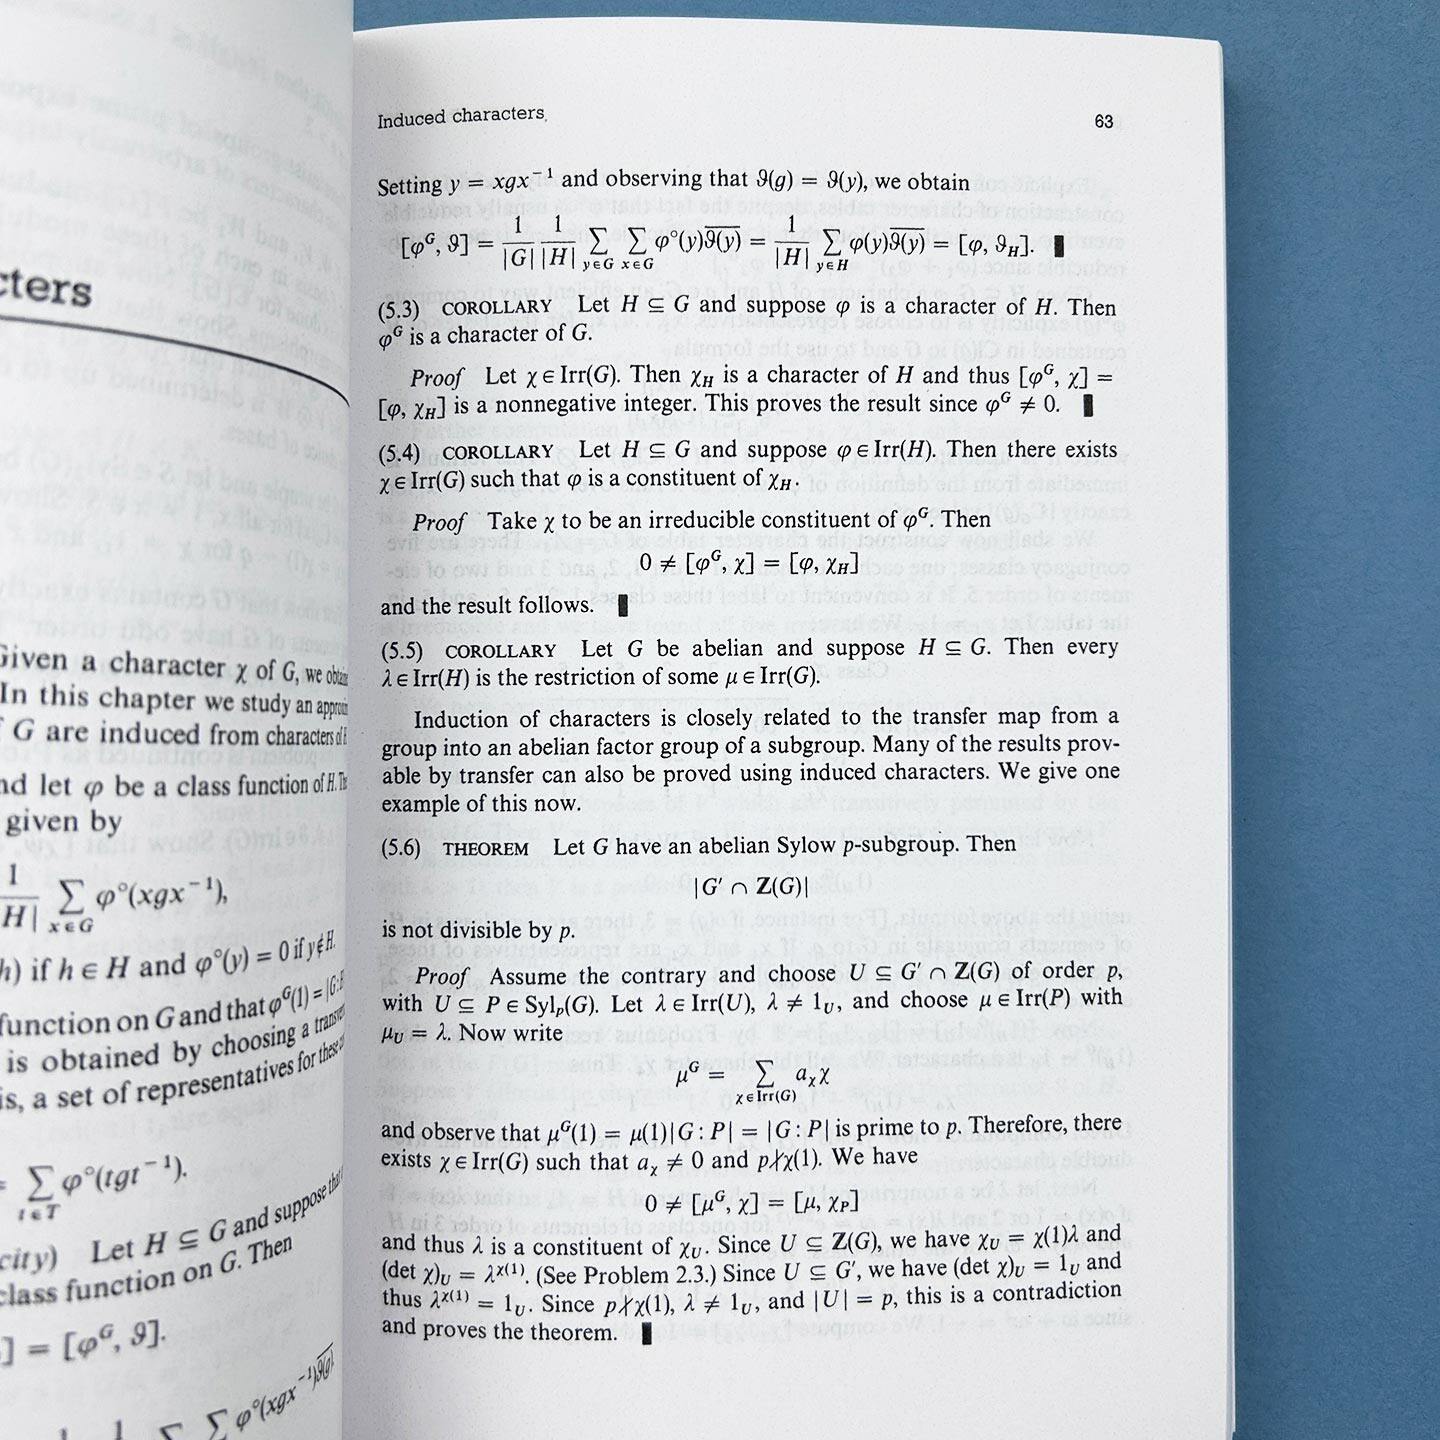 cters
Given a character χ of G, we obtain
In this chapter we study an
G are induced from characters of H
and let φ be a class function of H.
given by
1
|H| ∑ φ°(xgx⁻¹),
x∈G
h) if h ∈ H and φ°(y) = 0 if y ∉ H.
function on G and that φᴳ(1) = |G:
is obtained by choosing a
is, a set of representatives for these
= ∑ φ°(tgt⁻¹).
t∈T
city) Let H ⊆ G and suppose that
class function on G. Then
] = [φᴳ, ϑ].
∑ φ°(xgx⁻¹)ϑ(g)
Induced characters
63
Setting y = xgx⁻¹ and observing that ϑ(g) = ϑ(y), we obtain
[φᴳ, ϑ] = 1/|G| 1/|H| ∑_{y∈G} ∑_{x∈G} φ°(y)ϑ(y)̅ = 1/|H| ∑_{y∈H} φ(y)ϑ(y)̅ = [φ, ϑ_H]. ▮
(5.3) COROLLARY Let H ⊆ G and suppose φ is a character of H. Then
φᴳ is a character of G.
Proof Let χ ∈ Irr(G). Then χ_H is a character of H and thus [φᴳ, χ] =
[φ, χ_H] is a nonnegative integer. This proves the result since φᴳ ≠ 0. ▮
(5.4) COROLLARY Let H ⊆ G and suppose φ ∈ Irr(H). Then there exists
χ ∈ Irr(G) such that φ is a constituent of χ_H.
Proof Take χ to be an irreducible constituent of φᴳ. Then
0 ≠ [φᴳ, χ] = [φ, χ_H]
and the result follows. ▮
(5.5) COROLLARY Let G be abelian and suppose H ⊆ G. Then every
λ ∈ Irr(H) is the restriction of some μ ∈ Irr(G).
Induction of characters is closely related to the transfer map from a
group into an abelian factor group of a subgroup. Many of the results prov-
able by transfer can also be proved using induced characters. We give one
example of this now.
(5.6) THEOREM Let G have an abelian Sylow p-subgroup. Then
|G′ ∩ Z(G)|
is not divisible by p.
Proof Assume the contrary and choose U ⊆ G′ ∩ Z(G) of order p,
with U ⊆ P ∈ Syl_p(G). Let λ ∈ Irr(U), λ ≠ 1_U, and choose μ ∈ Irr(P) with
μ_U = λ. Now write
μᴳ = ∑_{χ∈Irr(G)} a_χ χ
and observe that μᴳ(1) = μ(1)|G : P| = |G : P| is prime to p. Therefore, there
exists χ ∈ Irr(G) such that a_χ ≠ 0 and p∤χ(1). We have
0 ≠ [μᴳ, χ] = [μ, χ_P]
and thus λ is a constituent of χ_U. Since U ⊆ Z(G), we have χ_U = χ(1)λ and
(det χ)_U = λ^{χ(1)}. (See Problem 2.3.) Since U ⊆ G′, we have (det χ)_U = 1_U and
thus λ^{χ(1)} = 1_U. Since p∤χ(1), λ ≠ 1_U, and |U| = p, this is a contradiction
and proves the theorem. ▮